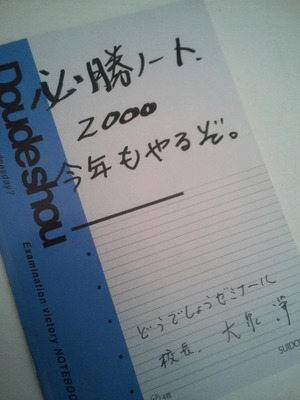 必・勝ノート.
2000
今年もやるぞ。
Doudeshou
Examination victory NOTEBOOK
どうでしょうゼミナール
校長. 大泉 洋